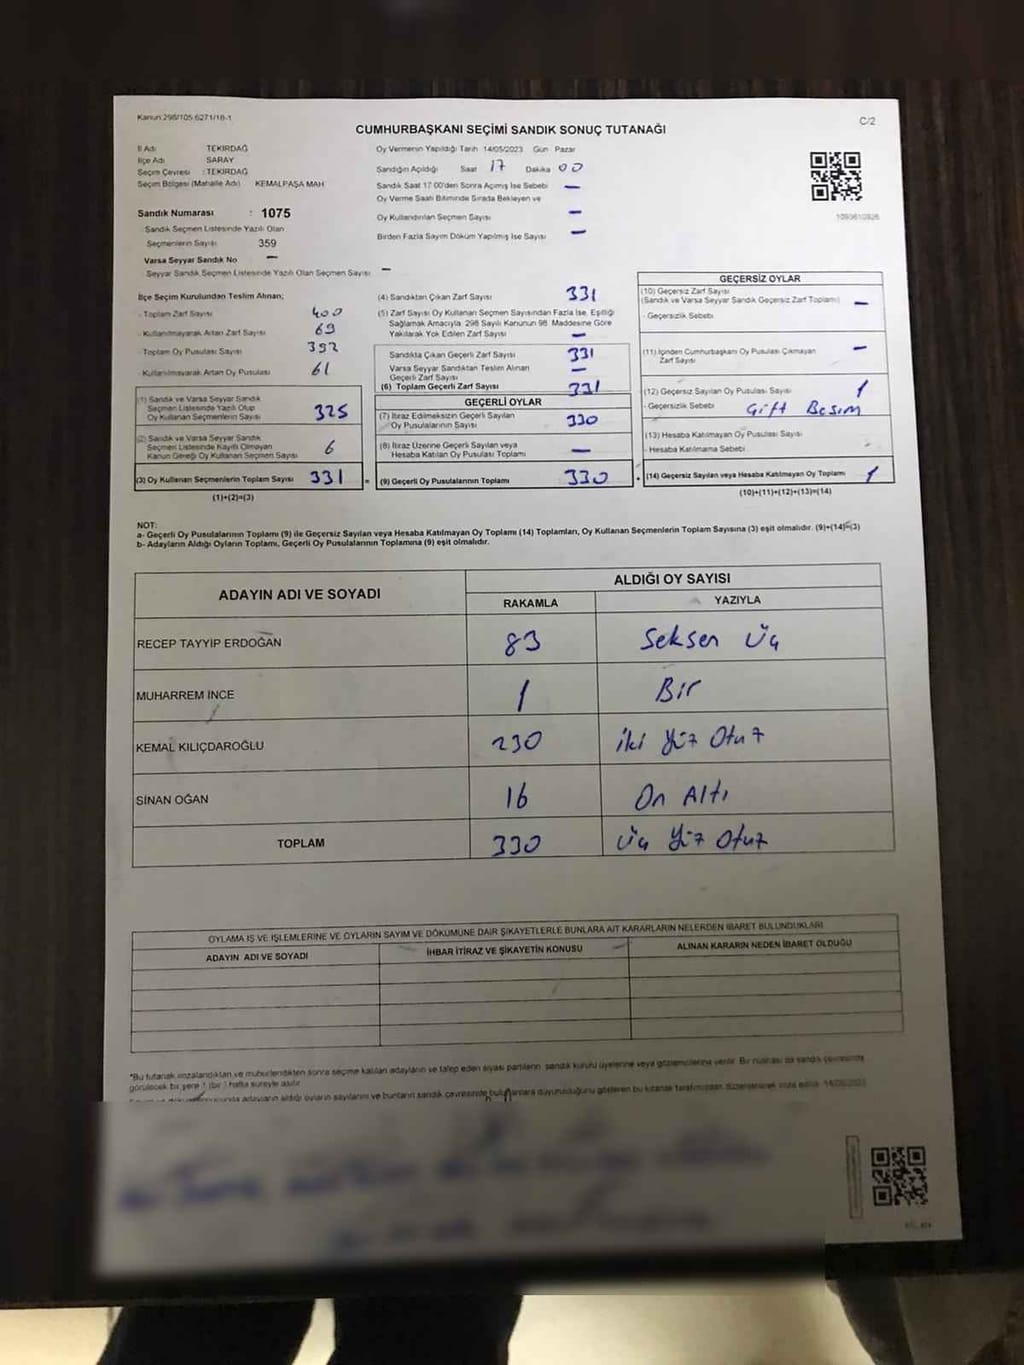 Kanun 298/105 6271/18-1
C/2
CUMHURBAŞKANI SEÇİMİ SANDIK SONUÇ TUTANAĞI
İl Adı TEKİRDAĞ
İlçe Adı SARAY
Seçim Çevresi : TEKİRDAĞ
Seçim Bölgesi (Mahalle Adı) KEMALPAŞA MAH
Sandık Numarası : 1075
Sandık Seçmen Listesinde Yazılı Olan
Seçmenlerin Sayısı 359
Varsa Seyyar Sandık No –
Seyyar Sandık Seçmen Listesinde Yazılı Olan Seçmen Sayısı –
Oy Vermenin Yapıldığı Tarih 14/05/2023 Gün Pazar
Sandığın Açıldığı Saat 17 Dakika 00
Sandık Saat 17 00'den Sonra Açılmış İse Sebebi –
Oy Verme Saati Bitiminde Sırada Bekleyen ve
Oy Kullandırılan Seçmen Sayısı –
Birden Fazla Sayım Döküm Yapılmış İse Sayısı –
1093610926
İlçe Seçim Kurulundan Teslim Alınan;
- Toplam Zarf Sayısı 400
- Kullanılmayarak Artan Zarf Sayısı 69
- Toplam Oy Pusulası Sayısı 392
- Kullanılmayarak Artan Oy Pusulası 61
(1) Sandık ve Varsa Seyyar Sandık
Seçmen Listesinde Yazılı Olup
Oy Kullanan Seçmenlerin Sayısı 325
(2) Sandık ve Varsa Seyyar Sandık
Seçmen Listesinde Kayıtlı Olmayan
Kanun Gereği Oy Kullanan Seçmen Sayısı 6
(3) Oy Kullanan Seçmenlerin Toplam Sayısı 331 =
(1)+(2)=(3)
(4) Sandıktan Çıkan Zarf Sayısı 331
(5) Zarf Sayısı Oy Kullanan Seçmen Sayısından Fazla İse, Eşitliği
Sağlamak Amacıyla, 298 Sayılı Kanunun 98. Maddesine Göre
Yakılarak Yok Edilen Zarf Sayısı –
Sandıkta Çıkan Geçerli Zarf Sayısı 331
Varsa Seyyar Sandıktan Teslim Alınan
Geçerli Zarf Sayısı –
(6) Toplam Geçerli Zarf Sayısı 331
GEÇERLİ OYLAR
(7) İtiraz Edilmeksizin Geçerli Sayılan
Oy Pusulalarının Sayısı 330
(8) İtiraz Üzerine Geçerli Sayılan veya
Hesaba Katılan Oy Pusulası Toplamı –
(9) Geçerli Oy Pusulalarının Toplamı 330 +
GEÇERSİZ OYLAR
(10) Geçersiz Zarf Sayısı
(Sandık ve Varsa Seyyar Sandık Geçersiz Zarf Toplamı) –
- Geçersizlik Sebebi
(11) İçinden Cumhurbaşkanı Oy Pusulası Çıkmayan
Zarf Sayısı –
(12) Geçersiz Sayılan Oy Pusulası Sayısı 1
- Geçersizlik Sebebi Çift Basım
(13) Hesaba Katılmayan Oy Pusulası Sayısı
- Hesaba Katılmama Sebebi
(14) Geçersiz Sayılan veya Hesaba Katılmayan Oy Toplamı 1
(10)+(11)+(12)+(13)=(14)
NOT:
a- Geçerli Oy Pusulalarının Toplamı (9) ile Geçersiz Sayılan veya Hesaba Katılmayan Oy Toplamı (14) Toplamları, Oy Kullanan Seçmenlerin Toplam Sayısına (3) eşit olmalıdır. (9)+(14)=(3)
b- Adayların Aldığı Oyların Toplamı, Geçerli Oy Pusulalarının Toplamına (9) eşit olmalıdır.
ADAYIN ADI VE SOYADI
ALDIĞI OY SAYISI
RAKAMLA YAZIYLA
RECEP TAYYİP ERDOĞAN 83 Seksen Üç
MUHARREM İNCE 1 Bir
KEMAL KILIÇDAROĞLU 230 İki Yüz Otuz
SİNAN OĞAN 16 On Altı
TOPLAM 330 Üç Yüz Otuz
OYLAMA İŞ VE İŞLEMLERİNE VE OYLARIN SAYIM VE DÖKÜMÜNE DAİR ŞİKAYETLERLE BUNLARA AİT KARARLARIN NELERDEN İBARET BULUNDUKLARI
ADAYIN ADI VE SOYADI
İHBAR İTİRAZ VE ŞİKAYETİN KONUSU
ALINAN KARARIN NEDEN İBARET OLDUĞU
*Bu tutanak imzalandıktan ve mühürlendikten sonra seçime katılan adayların ve talep eden siyasi partilerin sandık kurulu üyelerine veya gözlemcilerine verilir. Bir nüshası da sandık çevresinde
görülecek bir yere 1 (bir) hafta süreyle asılır
adayların aldığı oyların sayılarını ve bunların sandık çevresinde bulunanlara duyurulduğunu gösteren bu tutanak tarafımızdan düzenlenerek imza edildi. 14/05/2023